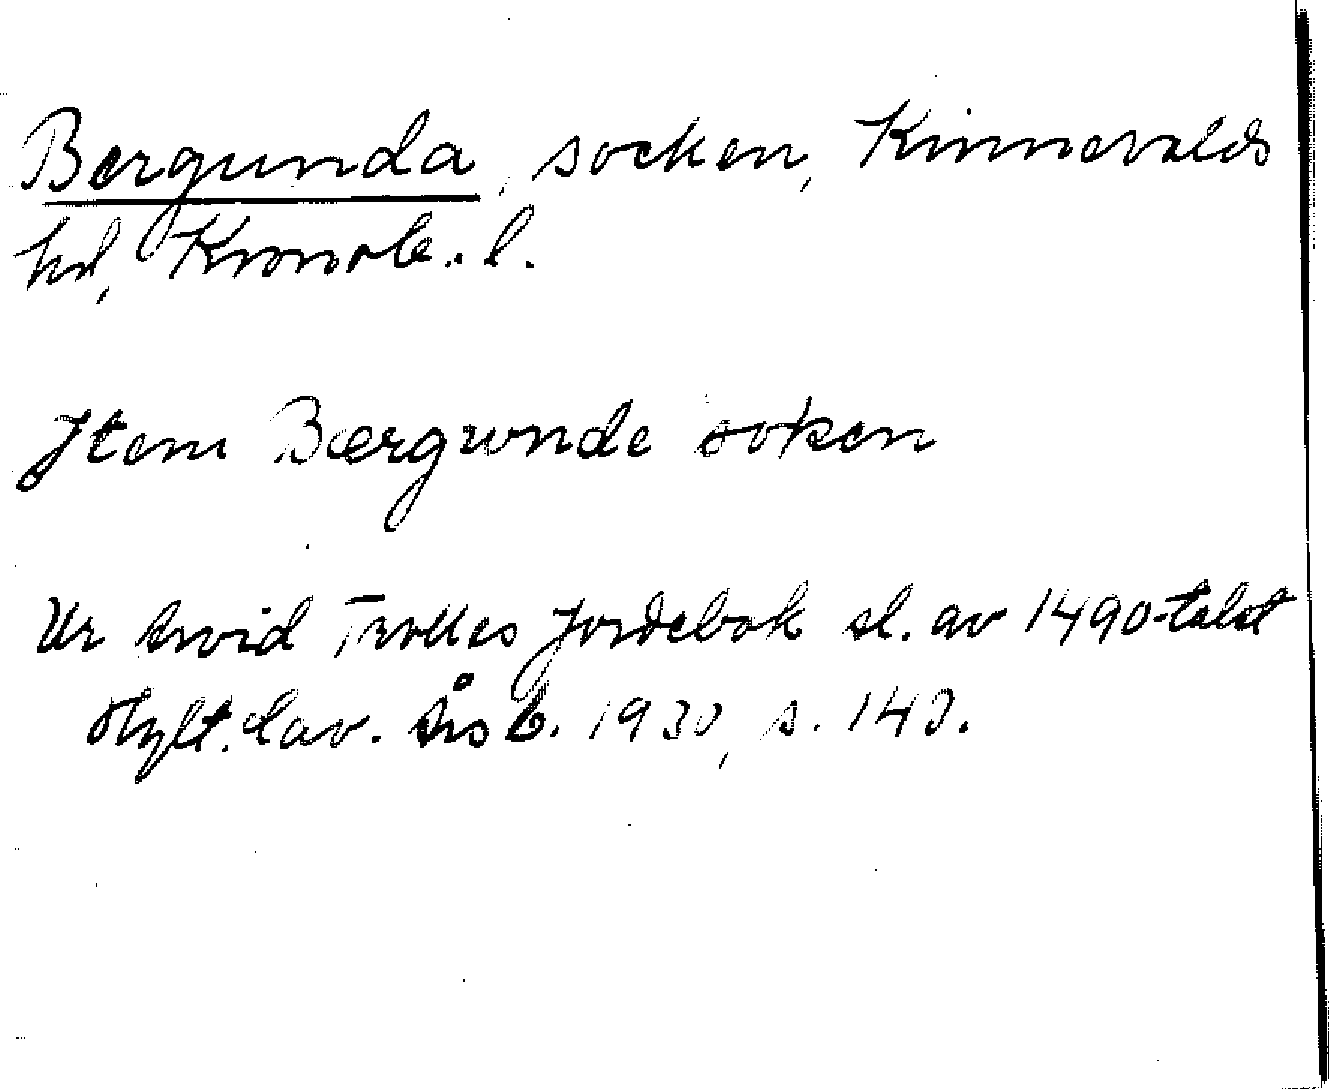 Bergunda, socken, Kinnevalds
hd, Kronob. l.
Item Bærgunde soken
Ur Arvid Trolles Jordebok sl. av 1490-talet
Hylt. Cav. Årsb. 1930, s. 140.